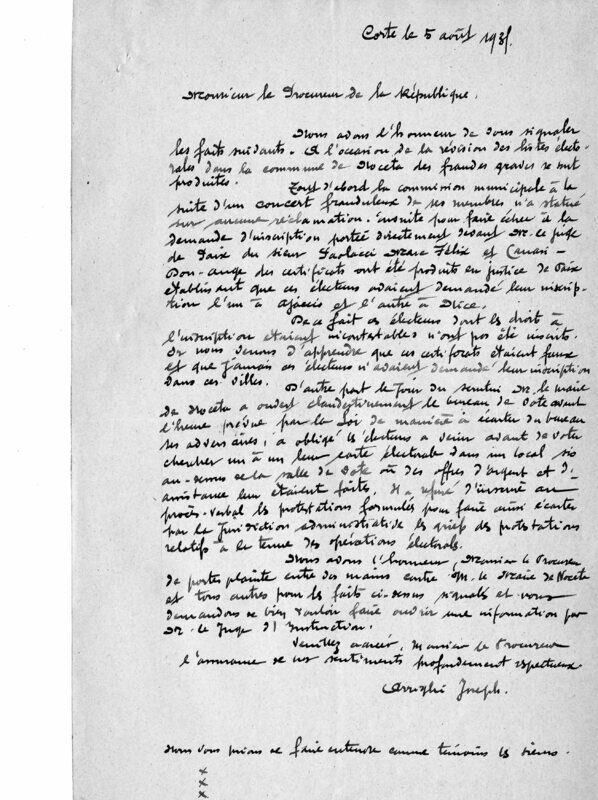 Corte le 5 août 1935.
Monsieur le Procureur de la République,
Nous avons l'honneur de vous signaler
les faits suivants. A l'occasion de la révision des listes électo-
rales dans la commune de Noceta des fraudes graves se sont
produites.
Tout d'abord la commission municipale à la
suite d'un concert frauduleux de ses membres n'a statué
sur aucune réclamation. ensuite pour faire échec à la
demande d'inscription portée directement devant Mr. le juge
de Paix du sieur Paolacci Marc Félix et
Don-ange des certificats ont été produits en justice de Paix
établissant que ces électeurs avaient demandé leur inscrip-
tion l'un à Ajaccio et l'autre à Nice.
De ce fait ces électeurs dont les droit à
l'inscription étaient incontestables n'ont pas été inscrits.
Or nous venons d'apprendre que ces certificats étaient faux
et que jamais ces électeurs n'avaient demandé leur inscription
dans ces villes. D'autre part le jour du scrutin Mr. le maire
de Noceta a ouvert clandestinement le bureau de vote avant
l'heure prévue par la loi de manière à écarter du bureau
ses adversaires, a obligé les électeurs a venir avant de voter
chercher un à un leur carte électorale dans un local sis
au-dessus de la salle de vote où des offres d'argent et d'
assistance leur étaient faites. Il a refusé d'insérer au
procès-verbal les protestations formulées pour faire aussi écarter
par la Juridiction administrative les griefs des protestations
relatifs à la tenue des opérations électorales.
Nous avons l'honneur, Monsieur le Procureur
de porter plainte entre vos mains contre M. le Maire de Noceta
et tous autres pour les faits ci-dessus signalés et vous
demandons de bien vouloir faire ouvrir une information par
Mr. le Juge d'Instruction.
Veuillez agréer, Monsieur le Procureur
l'assurance de nos sentiments profondément respectueux
Arrighi Joseph.
Nous vous prions de faire entendre comme témoins les sieurs.
x
x
x